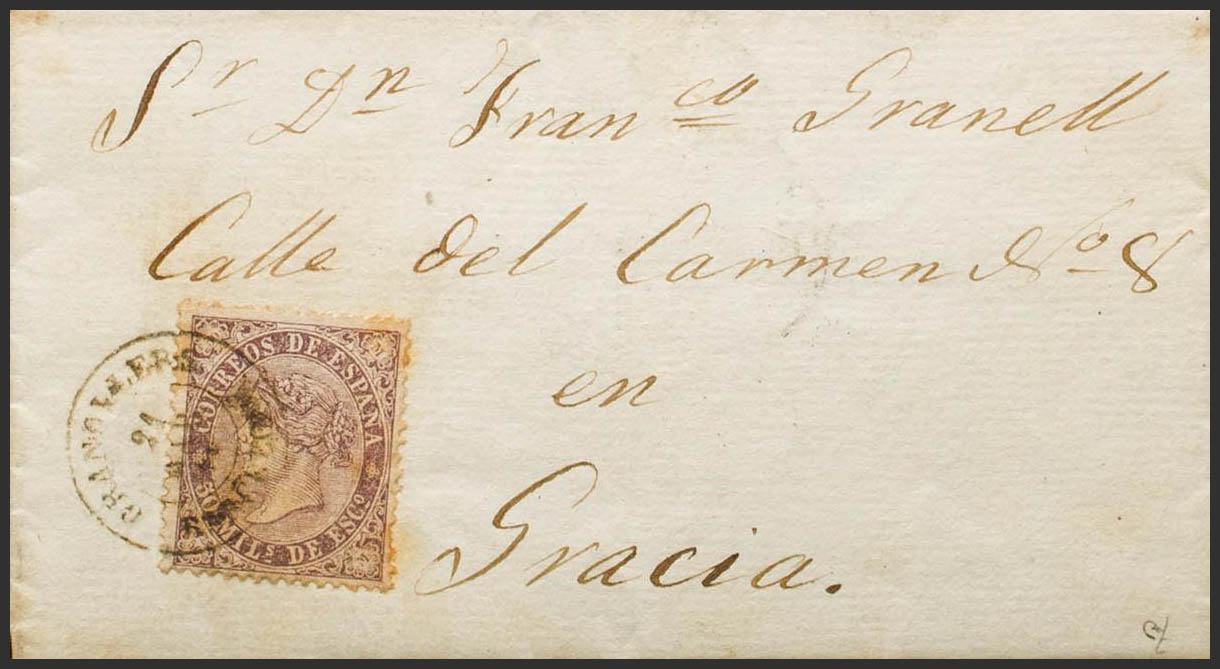 Sr Dn Franco Granell
Calle del Carmen No 8
en
Gracia.
CORREOS DE ESPAÑA
50 MILS DE ESCO
GRANOLLERS
21